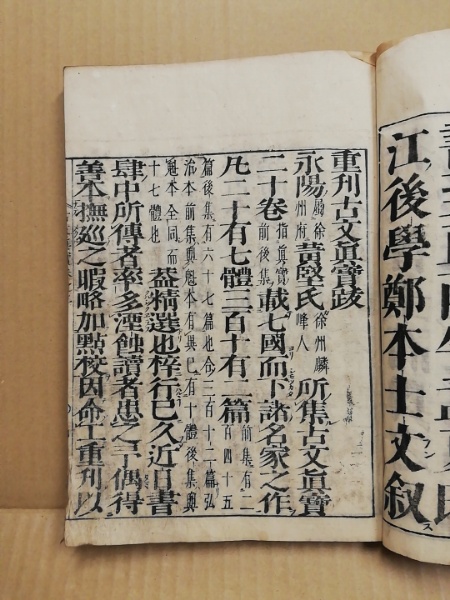 江後學鄭本士文叙
重刊古文眞寶跋
永陽屬徐州府黄堅氏徐州麟峰人所集古文眞寶
二十卷指眞寶前後集載七國而下諸名家之作
凡二十有七體三百十有二篇前集有二百四十五
篇後集有六十七篇也合三百十二篇弘
治本前集與魁本有異巳有十體後集與
魁本全同而十七體也蓋精選也梓行已久近日書
肆中所傳者率多湮蝕讀者患之予偶得
善本撫巡之暇略加點校因命工重刊以